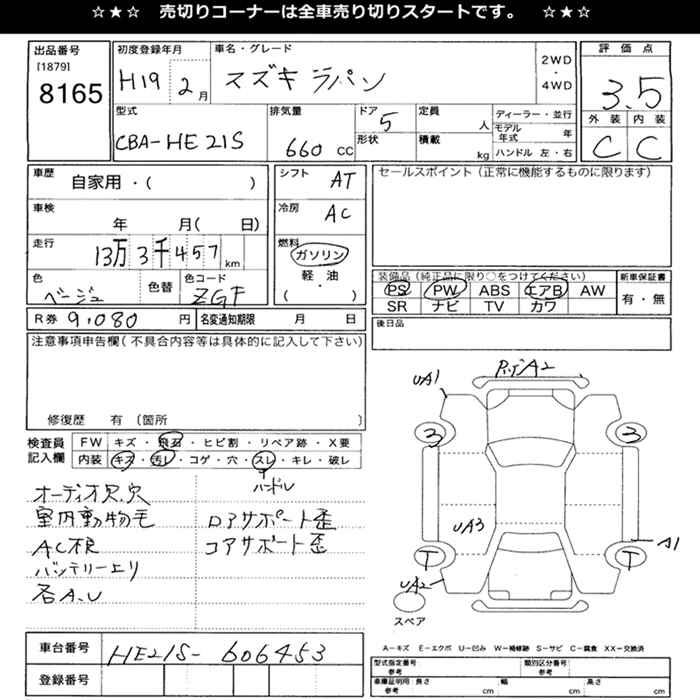 ☆★☆ 売切りコーナーは全車売り切りスタートです。 ☆★☆
出品番号 [1879] 8165
初度登録年月 H19 2月
車名・グレード スズキ ラパン
2WD・4WD
評価点 3.5
型式 CBA-HE21S
排気量 660 CC
ドア 5
形状
定員 人
積載 kg
ディーラー・並行
モデル年式 年
ハンドル 左・右
外装 C 内装 C
車歴 自家用・( )
シフト AT
セールスポイント(正常に機能するものに限ります)
車検 年 月( 日)
冷房 AC
走行 13万3千457 km
燃料 ガソリン 軽・油 ( )
色 ベージュ 色替 色コード ZGF
装備品(純正品に限り○をつけてください) 新車保証書
PS PW ABS エアB AW 有・無
SR ナビ TV カワ
R券 9,080 円 名変通知期限 月 日
後日品
注意事項申告欄(不具合内容等は具体的に記入して下さい)
修復歴 有 〔箇所 〕
検査員記入欄
FW キズ・飛石・ヒビ割・リペア跡・X要
内装 キズ・汚レ・コゲ・穴・スレ・キレ・破レ
ハンドル
オーディオ欠.穴
室内動物毛
AC不良
バッテリー上り
各A.U
ロアサポート歪
コアサポート歪
UA1
A2
3 3
UA3
A1
T T
UA2
スペア
車台番号 HE21S-606453
登録番号
A-キズ E-エクボ U-凹み W-補修跡 S-サビ C-腐食 XX-交換済
型式指定番号 参考 類別区分番号 参考
車庫証明用 参考 長さ cm 幅 cm 高さ cm